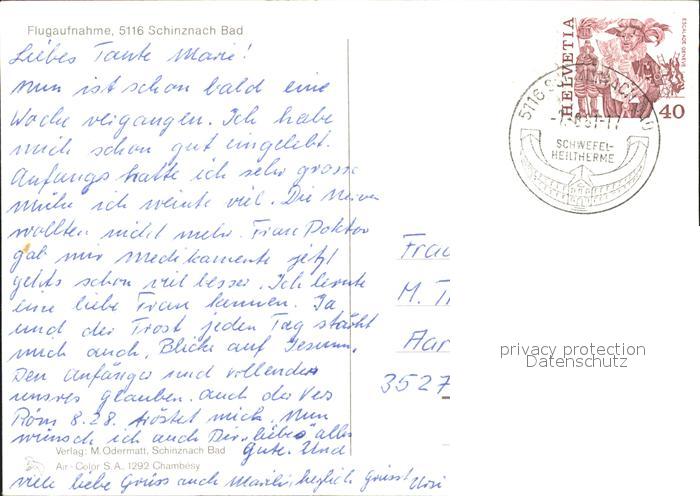 Flugaufnahme, 5116 Schinznach Bad
Liebes Tante Marie!
Nun ist schon bald eine
Woche vergangen. Ich habe
mich schon gut eingelebt.
Anfangs hatte ich sehr grosse
mühe ich weinte viel. Die Nerven
wollten nicht mehr. Frau Doktor
gab mir Medikamente jetzt
gehts schon viel besser. Ich lernte
eine liebe Frau kennen. Ja
und der Trost jeden Tag stärkt
mich auch, Blicke auf Jesum.
Den Anfänger und vollender
unsres glauben. auch der Vers
Röm 8.28. tröstet mich. Nun
wünsch ich auch Dir "liebes" alles
gute. Und
viele liebe Grüss auch herzlich grüsst Ursi
Verlag: M. Odermatt, Schinznach Bad
Air-Color S.A. 1292 Chambésy
HELVETIA
ESCALADE GENÈVE
40
5116 SCHINZNACH BAD
SCHWEFEL-
HEILTHERME
Frau
M. T
Aar
3527
privacy protection
Datenschutz